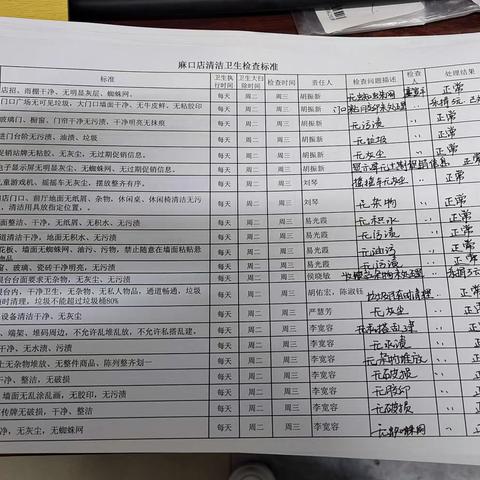 麻口店清洁卫生检查标准
标准 卫生执行时间 卫生大扫除时间 检查时间 责任人 检查问题描述 检查人 处理结果
店招、雨棚干净、无明显灰层、蜘蛛网。 每天 周二 周三 胡振新 正常
门口广场无可见垃圾,大门口墙面干净、无牛皮鲜、无粘胶印 每天 周二 周三 胡振新
玻璃门、橱窗、门帘干净无污渍、干净明亮无抹痕 每天 周二 周三 胡振新 无污渍 正常
进门台阶无污渍、油渍、垃圾 每天 周二 周三 胡振新 无垃圾 正常
促销站牌无粘胶、无灰尘,无过期促销信息。 每天 周二 周三 胡振新 无灰尘 正常
电子显示屏无明显灰尘、蜘蛛网、无过期促销信息。 每天 周二 周三 胡振新 正常
儿童游戏机、摇摇车无灰尘,摆放整齐有序。 每天 周二 周三 刘琴 摇摇车无灰尘 正常
店门口、前厅地面无纸屑、杂物,休闲桌、休闲椅清洁无污
,清洁用具放指定位置。 每天 周二 周三 刘琴 无杂物 正常
面整洁、干净,无纸屑、无积水、无污渍 每天 周二 周三 易光霞 无积水 正常
道清洁干净、地面无积水、无污渍 每天 周二 周三 易光霞 无污渍 正常
花板、墙面无蜘蛛网、油污、污物,禁止随意在墙面粘贴悬
物品 每天 周二 周三 易光霞 无油污 正常
窗、玻璃、瓷砖干净明亮,无污渍 每天 周二 周三 易光霞 无污渍 正常
银台台面要求无杂物,无灰尘、无污渍 每天 周二 周三 侯晓敏
银台内,干净卫生,无杂物、无私人物品,通道畅通,垃圾
随时清理,垃圾不能超过垃圾桶80% 每天 周二 周三 胡佑宏,陈淑钰 正常
设备清洁干净、无灰尘 每天 周二 周三 严慧芳 无灰尘 正常
、端架、堆码周边,不允许乱堆乱放,不允许私搭乱建。 每天 周二 周三 李宽容 正常
净、无水渍、污渍 每天 周二 周三 李宽容 无水渍 正常
上无杂物堆放、无整件商品、陈列整齐划一 每天 周二 周三 李宽容 正常
干净、整洁,无破损 每天 周二 周三 李宽容 无破损 正常
,墙面无乱涂乱画,无胶印,无污渍 每天 周二 周三 李宽容 无胶印 正常
宣传牌无破损,干净、整洁 每天 周二 周三 李宽容 无破损 正常
净,无灰尘,无蜘蛛网 每天 周二 周三 李宽容 正常